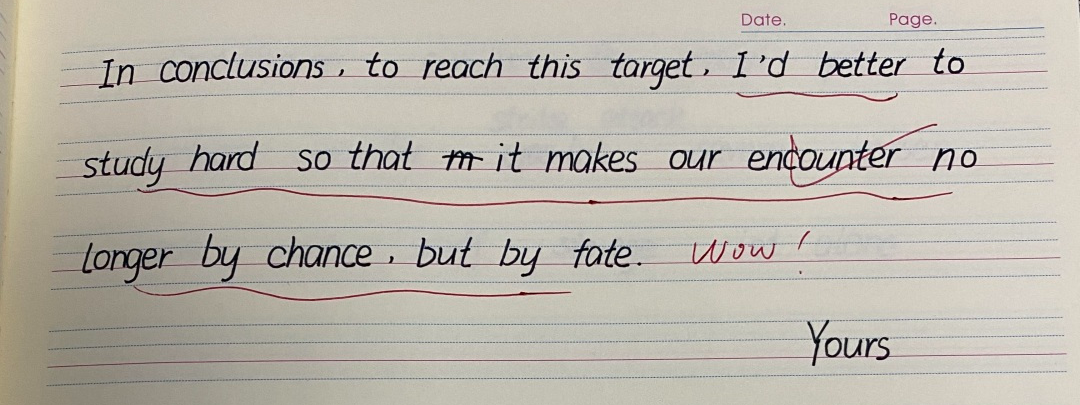 Date. Page.
In conclusions, to reach this target, I'd better to
study hard so that m it makes our encounter no
longer by chance, but by fate. Wow!
Yours